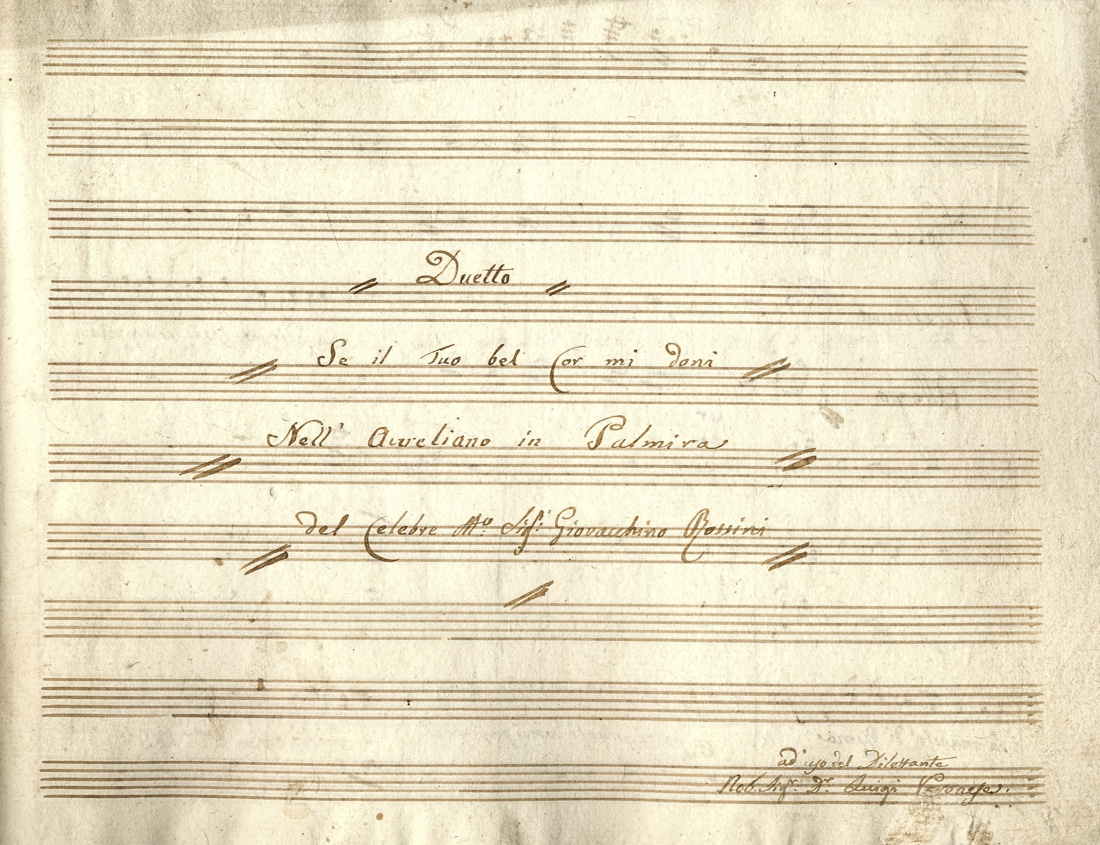 Duetto
Se il Tuo bel Cor mi doni
Nell' Aureliano in Palmira
del Celebre Mº: Sigr: Giovacchino Rossini
ad'uso del Dilettante
Nob. Sigr. Dr. Luigi